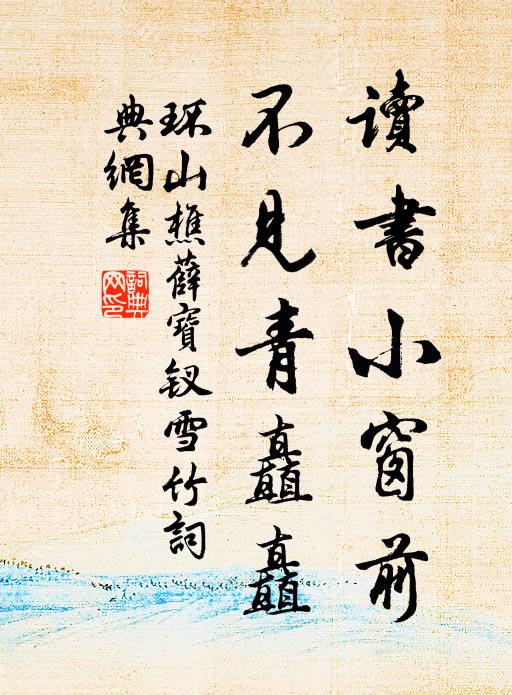 讀書小窗前
不見青矗矗
环山樵薛寶釵雪竹詞
典網集
詞典
网印